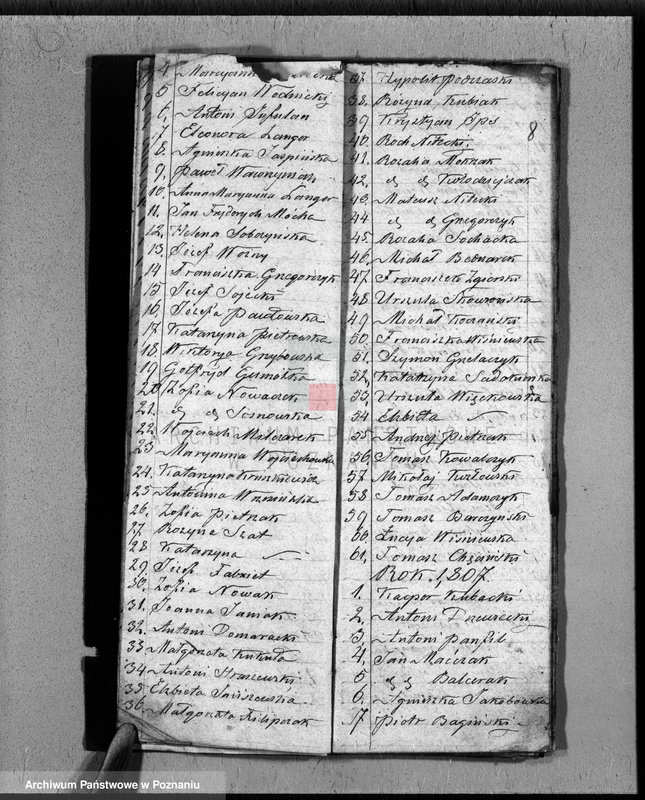 4. Maryanna
5 Felicyan Wodnicki
6, Antoni Infulan
7, Eleonora Langor
8. Agnieszka Jaspińska
9. Paweł Wawrzyniak
10. Anna Maryanna Langor
11. Jan Frydrych Mocha
12. Helena Sobczyńska
13. Jozef Wozny
14 Franciszka Grzegorczyk
15 Jozef Sojecki
16 Jozefa Pawłowska
17 Katarzyna Pietrowska
18 Wiktorya Grzybowska
19 Gotfryd Gumołka
20 Zofia Nowaczek
21. dº dº Sosnowska
22 Woyciech Matczarek
23 Maryanna Woyciechowska
24. Katarzyna
25 Antonina
26. Zofia Pietrzak
27 Rozyna Szat
28 Katarzyna —
29 Jozef
30. Zofia Nowak
31. Joanna Janiak
32. Antoni Domaracki
33 Małgorzata Kukuła
34 Antoni Straszewski
35 Elzbieta Janiszewska
36. Małgorzata Filipczak
37. Hypolit Podczaski
38. Rozyna Kubiak
39 Krystyan
8
40. Roch Nitecki
41. Rozalia
42, dº dº Kołodzieyczak
43 Mateusz Nitecki
44 dº dº Gregorczyk
45. Rozalia Sochacka
46. Michał Bednarek
47. Franciszek Zgierski
48. Urszula Skowrońska
49. Michał
50. Franciszka Wiśniewska
51. Szymon Grelaczyk
52, Katarzyna Sadokierska
53, Urszula Więckowska
54 Elzbieta —
55 Andrzej Pietrzak
56, Tomasz Kowalczyk
57. Mikołaj Kozłowski
58 Tomasz Adamczyk
59, Tomasz Barczyński
60. Łucyja Wiśniewska
61, Tomasz
Rok. 1807.
1. Kacper Kubacki
2, Antoni Drzewiecki
3, Antoni Panfil
4, Jan Maćczak
5 dº dº Balcerak
6. Agnieszka Jakobowska
7. Piotr Bagiński
Archiwum Państwowe w Poznaniu